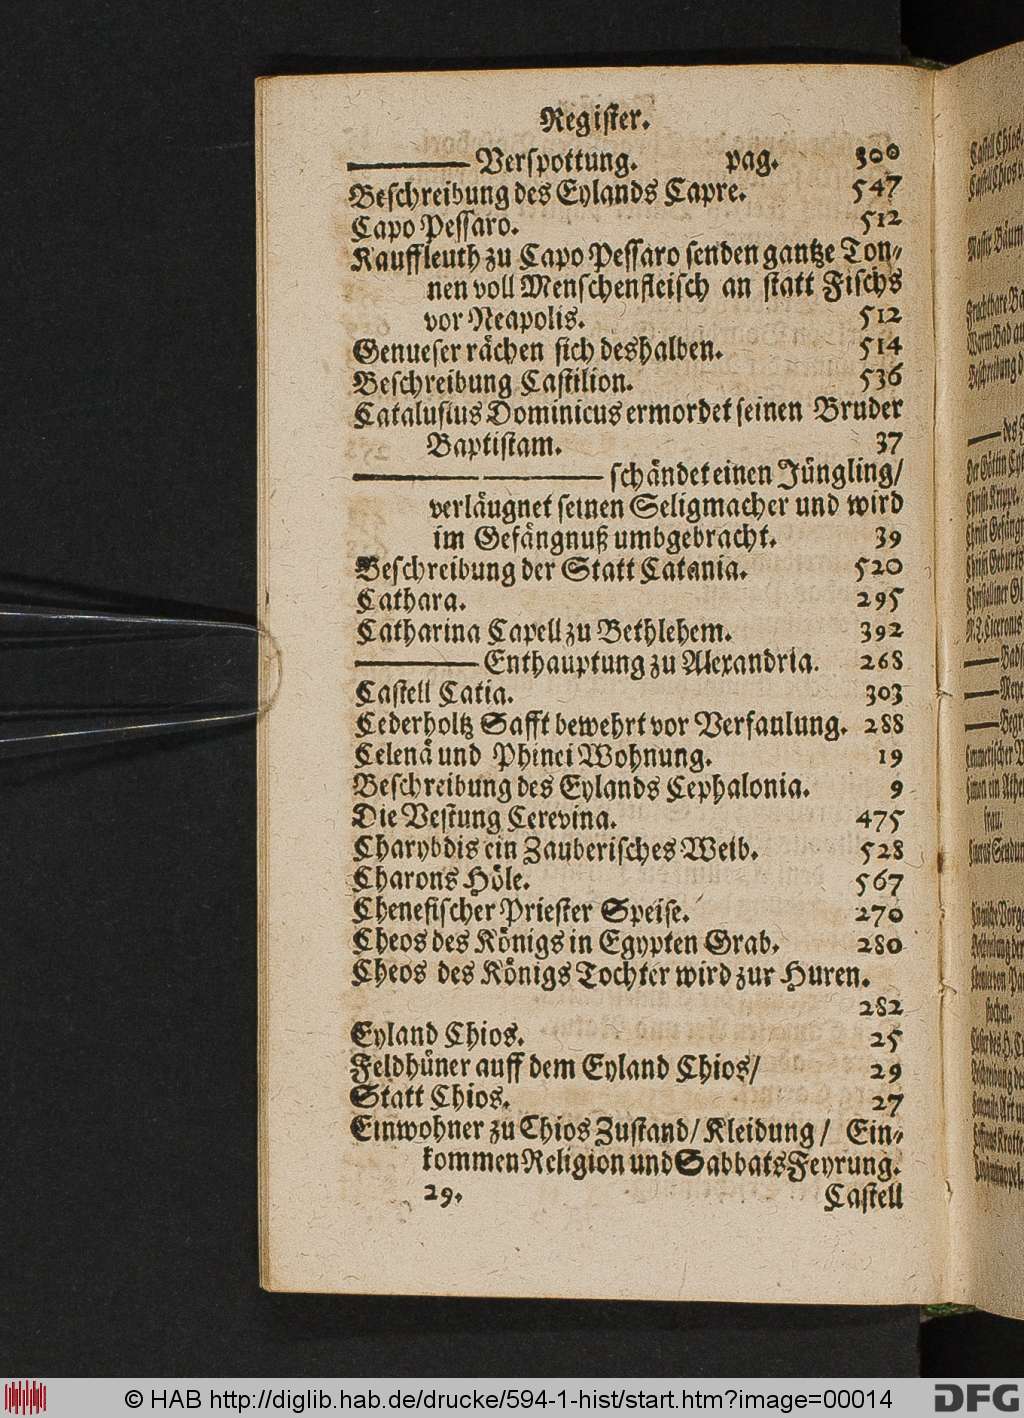 Register.
——— Verspottung. pag. 300
Beschreibung des Eylands Capre. 547
Capo Pessaro. 512
Kauffleuth zu Capo Pessaro senden gantze Ton-
nen voll Menschenfleisch an statt Fischs
vor Neapolis. 512
Genueser rächen sich deshalben. 514
Beschreibung Castilion. 536
Catalusius Dominicus ermordet seinen Bruder
Baptistam. 37
——— ——— schändet einen Jüngling/
verläugnet seinen Seligmacher und wird
im Gefängnuß umbgebracht. 39
Beschreibung der Statt Catania. 520
Cathara. 295
Catharina Capell zu Bethlehem. 392
——— Enthauptung zu Alexandria. 268
Castell Catia. 303
Cederholtz Safft bewehrt vor Verfaulung. 288
Celenä und Phinei Wohnung. 19
Beschreibung des Eylands Cephalonia. 9
Die Vestung Cerevina. 475
Charybdis ein Zauberisches Weib. 528
Charons Höle. 567
Chenefischer Priester Speise. 270
Cheos des Königs in Egypten Grab. 280
Cheos des Königs Tochter wird zur Huren.
282
Eyland Chios. 25
Feldhüner auff dem Eyland Chios/ 29
Statt Chios. 27
Einwohner zu Chios Zustand/ Kleidung/ Ein-
kommen Religion und Sabbats Feyrung.
29. Castell
© HAB http://diglib.hab.de/drucke/594-1-hist/start.htm?image=00014
DFG